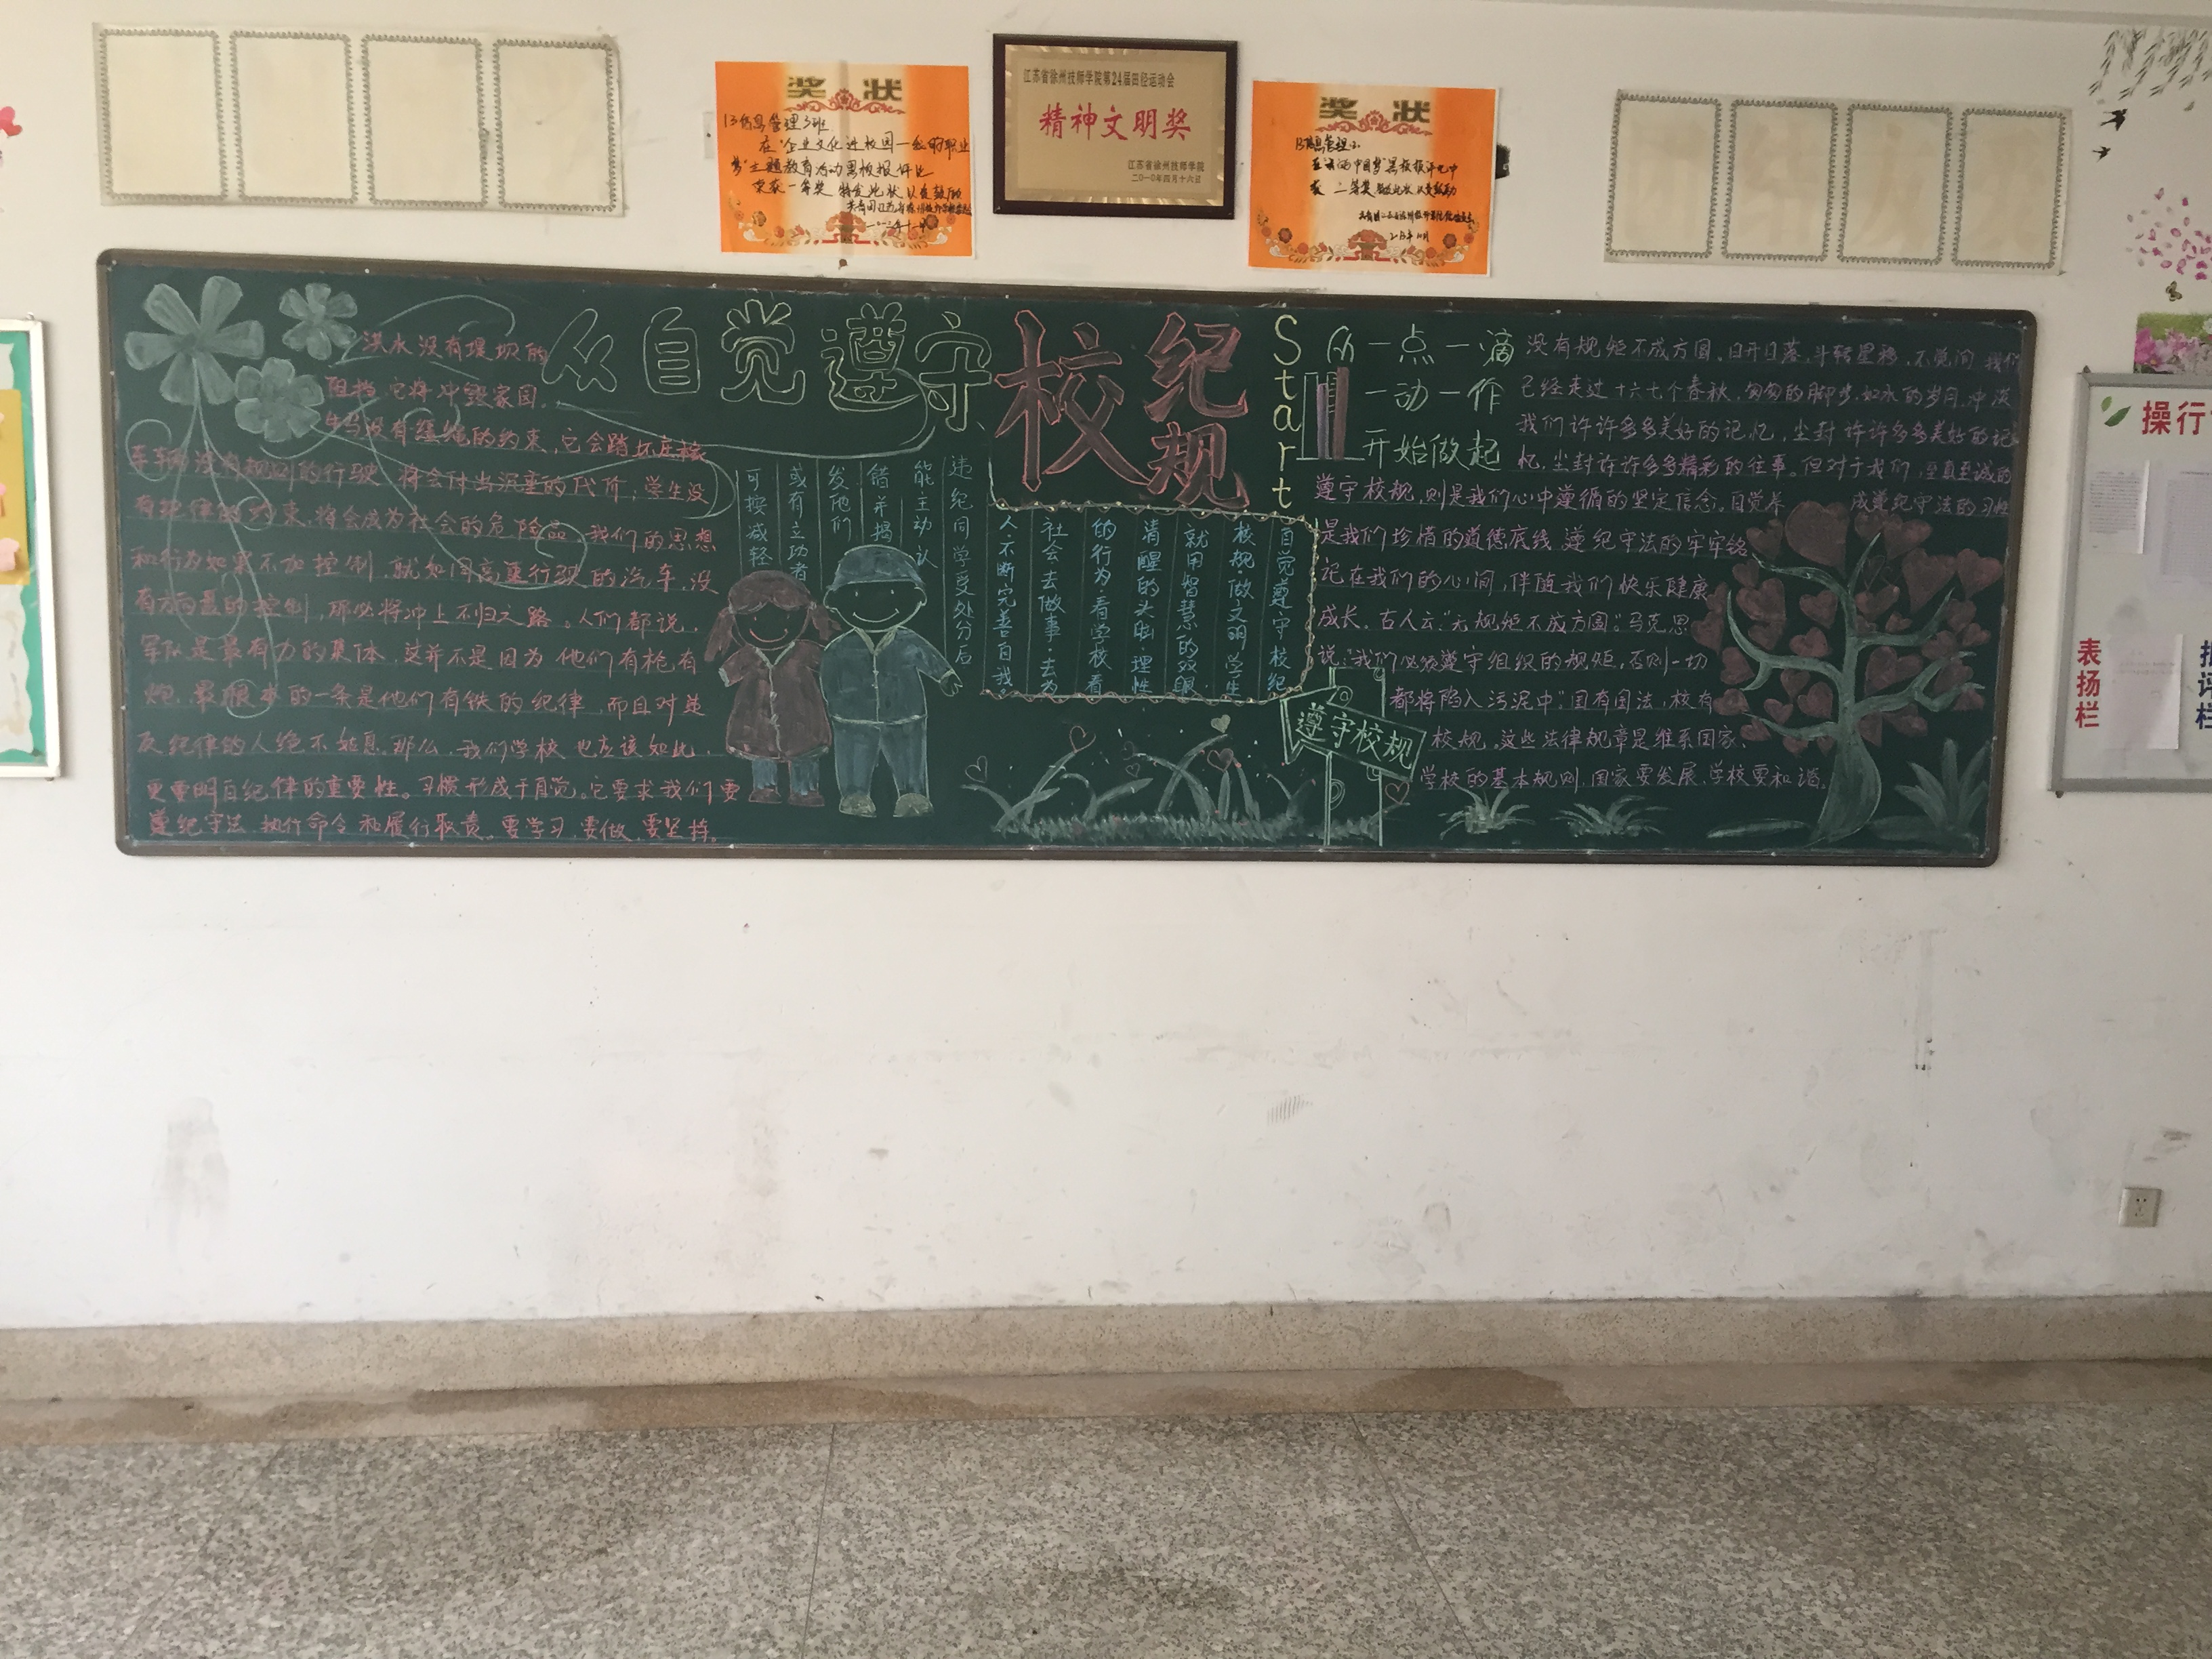 奖状
13信息管理3班
在"企业文化进校园—我的职业
梦"主题教育活动黑板报评比
荣获一等奖 特发此状,以资鼓励
江苏省徐州技师学院第24届田径运动会
精神文明奖
江苏省徐州技师学院
二〇一〇年四月十六日
奖状
从自觉遵守
校纪
规
Start
洪水没有堤坝的
阻挡,它将冲毁家园。
牛马没有缰绳的约束,它会踏坏庄稼
车辆没有规则的行驶,将会付出沉重的代价,学生没
有纪律的约束,将会成为社会的危险品,我们的思想
和行为如果不加控制,就如同高速行驶的汽车,没
有方向盘的控制,那必将冲上不归之路。人们都说,
军队是最有力的集体,这并不是因为他们有枪,有
炮,最根本的一条是他们有铁的纪律,而且对违
反纪律的人绝不姑息,那么,我们学校也应该如此,
更要明白纪律的重要性。习惯形成于自觉。它要求我们要
遵纪守法,执行命令和履行职责。要学习,要做,要坚持。
违纪同学受处分后
能主动认
错并揭
发他们
或有立功者
可按减轻
自觉遵守校纪
校规·做文明学生
就用智慧的双眼,
清醒的头脑·理性
的行为·看学校看
社会去做事·去为
人·不断完善自我。
从一点一滴
一动一作
开始做起
没有规矩不成方圆。日开日落,斗转星移,不觉间,我们
已经走过十六七个春秋,匆匆的脚步,如水的岁月,冲淡
我们许许多多美好的记忆,尘封许许多多美好的记
忆,尘封许许多多精彩的往事。但对于我们,至真至诚的
遵守校规,则是我们心中遵循的坚定信念。自觉养成遵纪守法的习性
是我们珍惜的道德底线,遵纪守法的牢牢铭
记在我们的心间,伴随我们快乐健康
成长。古人云:"无规矩不成方圆。"马克思
说:"我们必须遵守组织的规矩,否则一切
都将陷入污泥中"国有国法,校有
校规。这些法律规章是维系国家、
学校的基本规则,国家要发展,学校要和谐,
遵守校规
操行
表扬栏